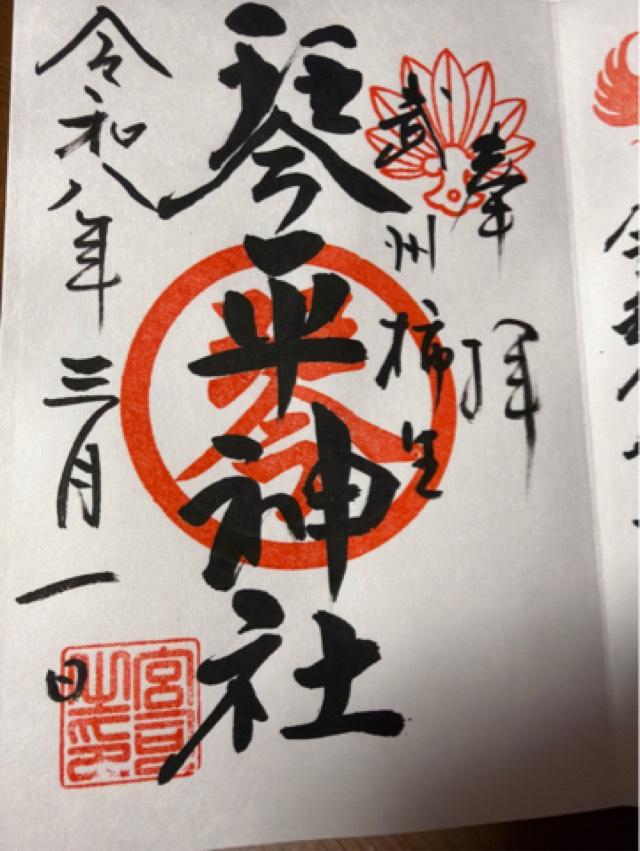 奉拝
武州柿生
琴平神社
令和八年三月一日
宮司之印